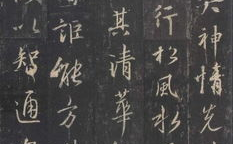 神情先
行松風水
其清華
詎能方
以智通